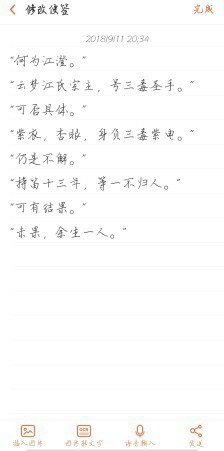 修改便签
完成
2018/9/11 20:34
“何为江澄。”
“云梦江氏宗主，号三毒圣手。”
“可否具体。”
“紫衣，杏眼，身负三毒紫电。”
“仍是不解。”
“持笛十三年，等一不归人。”
“可有结果。”
“未果，余生一人。”
插入图片
图片转文字
语音输入
发送